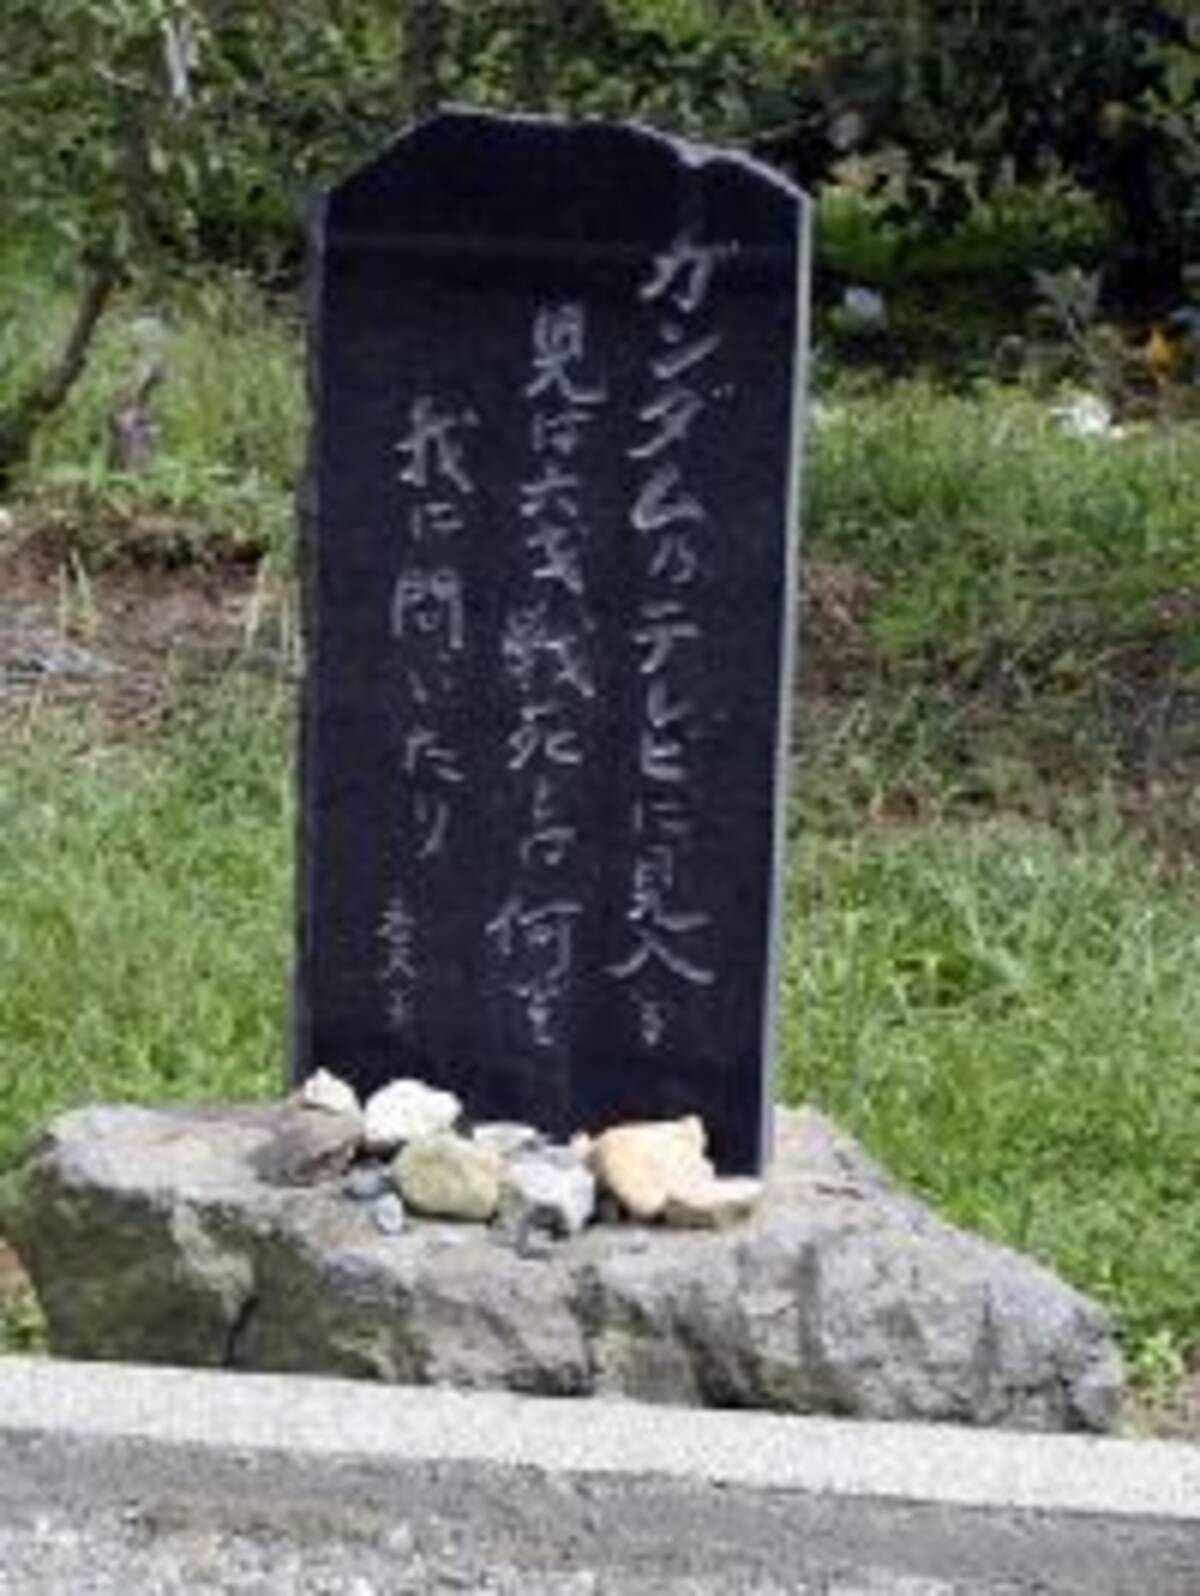 ガンダム乃テレビに見入る
児は六才戦死とは何と
我に問いたり